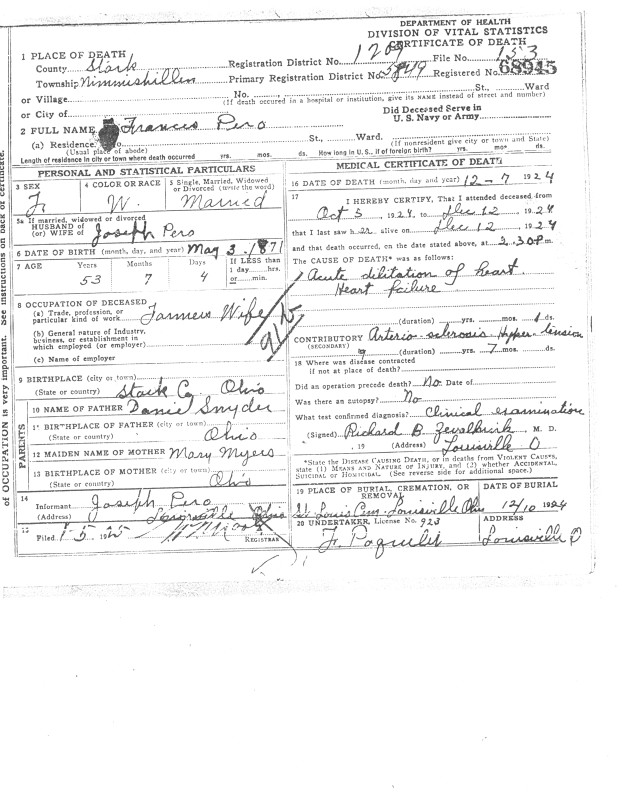 DEPARTMENT OF HEALTH
DIVISION OF VITAL STATISTICS
CERTIFICATE OF DEATH
1 PLACE OF DEATH
County Stark Registration District No. 1207 File No. 153
Township Nimmishillin Primary Registration District No. 5849 Registered No. 68945
or Village No. , St., Ward
(If death occured in a hospital or institution, give its NAME instead of street and number)
or City of
Did Deceased Serve in
U. S. Navy or Army
2 FULL NAME Frances Pero
(a) Residence. No St., Ward.
(Usual place of abode) (If nonresident give city or town and State)
Length of residence in city or town where death occurred yrs. mos. ds. How long in U. S., if of foreign birth? yrs. mos. ds.
PERSONAL AND STATISTICAL PARTICULARS
3 SEX 4 COLOR OR RACE 5 Single, Married, Widowed
or Divorced (write the word)
F. W. Married
5a If married, widowed or divorced
HUSBAND of
(or) WIFE of Joseph Pero
6 DATE OF BIRTH (month, day, and year) May 3, 1871
7 AGE Years Months Days If LESS than
1 day, hrs.
or min.
53 7 4
8 OCCUPATION OF DECEASED
(a) Trade, profession, or
particular kind of work Farmers Wife
(b) General nature of Industry,
business, or establishment in
which employed (or employer)
(c) Name of employer
9 BIRTHPLACE (city or town)
(State or country) Stark Co, Ohio
PARENTS
10 NAME OF FATHER Daniel Snyder
11 BIRTHPLACE OF FATHER (city or town)
(State or country) Ohio
12 MAIDEN NAME OF MOTHER Mary Myers
13 BIRTHPLACE OF MOTHER (city or town)
(State or country) Ohio
14
Informant Joseph Pero
(Address) Louisville Ohio
15
Filed 1-5 1925
REGISTRAR
MEDICAL CERTIFICATE OF DEATH
16 DATE OF DEATH (month, day and year) 12-7 1924
17 I HEREBY CERTIFY, That I attended deceased from
Oct 5, 1924, to Dec 12, 1924
that I last saw h er alive on Dec 12, 1924
and that death occurred, on the date stated above, at 2.30P m.
The CAUSE OF DEATH* was as follows:
Acute dilitation of heart.
Heart failure
(duration) yrs. mos. 1 ds.
CONTRIBUTORY Arterio-sclerosis Hyper-tension
(SECONDARY) (duration) yrs. 7 mos. ds.
18 Where was disease contracted
if not at place of death?
Did an operation precede death? No Date of
Was there an autopsy? No
What test confirmed diagnosis? Clinical examination
(Signed) Richard B. M. D.
, 19 (Address) Louisville O
*State the DISEASE CAUSING DEATH, or in deaths from VIOLENT CAUSES,
state (1) MEANS AND NATURE OF INJURY, and (2) whether ACCIDENTAL,
SUICIDAL or HOMICIDAL. (See reverse side for additional space.)
19 PLACE OF BURIAL, CREMATION, OR
REMOVAL
DATE OF BURIAL
St. Louis Cem. Louisville Ohio 12/10 1924
20 UNDERTAKER, License No. 923 ADDRESS
F. Paquelet Louisville O
of OCCUPATION is very important. See instructions on back of certificate.